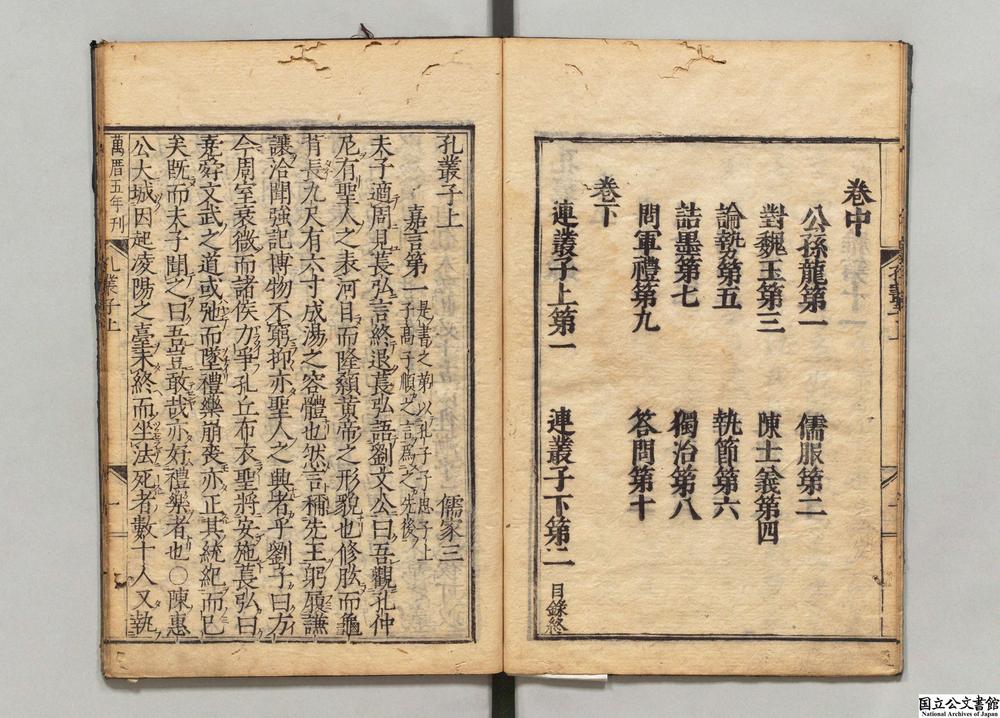 卷中
公孫龍第一　儒服第二
對魏王第三　陳士義第四
論勢第五　執節第六
詰墨第七　獨治第八
問軍禮第九　答問第十
卷下
連叢子上第一　連叢子下第二　目錄終
孔叢子上　儒家三
嘉言第一　是書之第以孔子子思子上子高子順之言爲之先後
夫子適周見萇弘言終退萇弘語劉文公曰吾觀孔仲
尼有聖人之表河目而隆顙黄帝之形貌也修肱而龜
背長九尺有六寸成湯之容體也然言稱先王躬履謙
讓洽聞強記博物不窮抑亦聖人之興者乎劉子曰方
今周室衰微而諸侯力爭孔丘布衣聖將安施萇弘曰
堯舜文武之道或弛而墜禮樂崩喪亦正其統紀而已
矣既而夫子聞之曰吾豈敢哉亦好禮樂者也〇陳惠
公大城因起凌陽之臺未終而坐法死者數十人又執
萬曆五年刊　孔叢子上　一
国立公文書館
National Archives of Japan